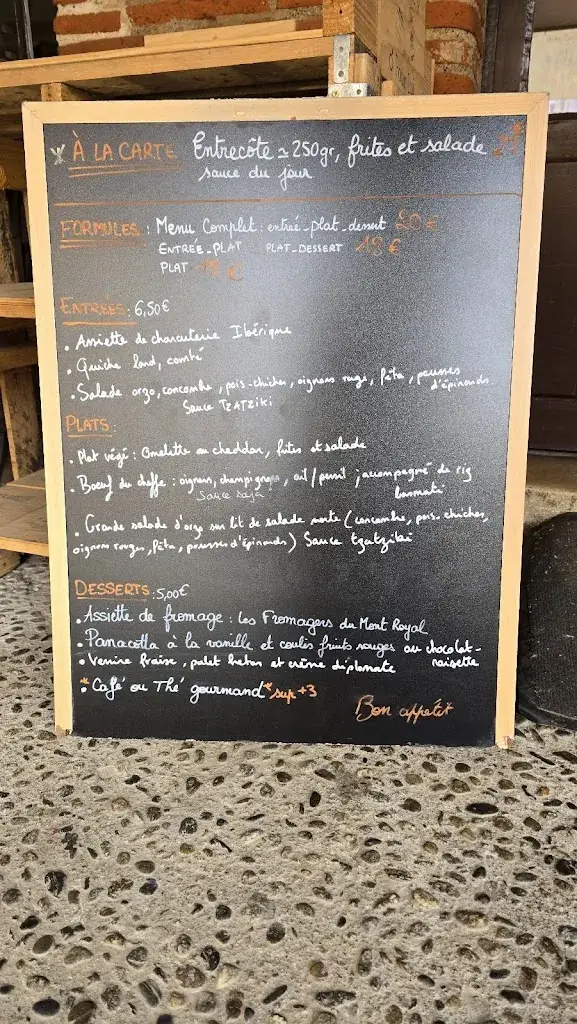 À LA CARTE Entrecôte ≃ 250gr, frites et salade
sauce du jour
FORMULES : Menu Complet : entrée-plat-dessert 20 €
ENTREE-PLAT PLAT-DESSERT 18 €
PLAT 15 €
ENTRÉES : 6,50€
• Assiette de charcuterie Ibérique
• Quiche lard, comté
• Salade orzo, concombre, pois-chiches, oignons rouge, féta, pousses
d'épinards.
Sauce TZATZIKI
PLATS :
• Plat végé : Omelette au cheddar, frites et salade
• Boeuf du cheffe : oignons, champignons, ail/persil ; accompagné de riz
Sauce soja basmati
• Grande salade d'orzo sur lit de salade verte (concombre, pois-chiches,
oignons rouges, féta, pousses d'épinards) Sauce tzatziki
DESSERTS : 5,00€
• Assiette de fromage : Les Fromagers du Mont Royal
• Panacotta à la vanille et coulis fruits rouges ou chocolat-
noisette
• Verrine fraise, palet breton et crème diplomate
* • Café ou Thé gourmand * sup +3
Bon appétit